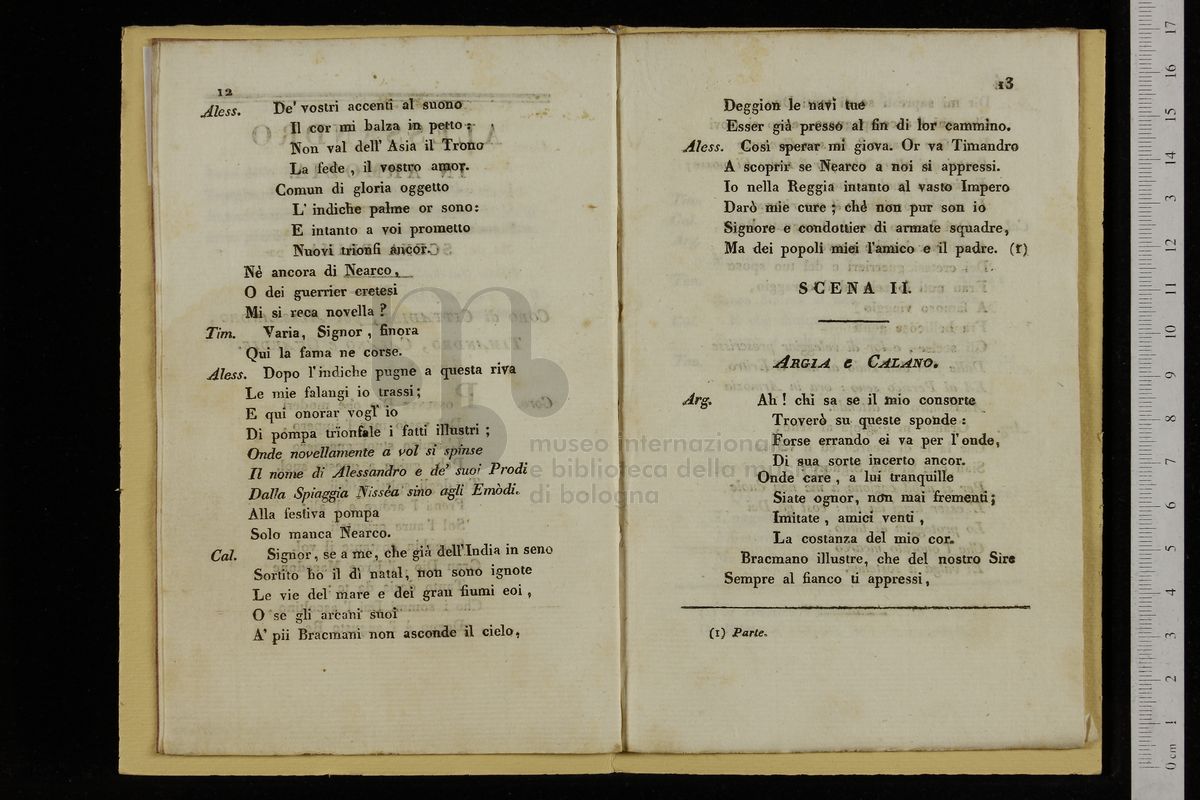 12
Aless. De' vostri accenti al suono
Il cor mi balza in petto:
Non val dell' Asia il Trono
La fede, il vostro amor.
Comun di gloria oggetto
L' indiche palme or sono:
E intanto a voi prometto
Nuovi trionfi ancor.
Nè ancora di Nearco,
O dei guerrier cretesi
Mi si reca novella?
Tim. Varia, Signor, finora
Qui la fama ne corse.
Aless. Dopo l'indiche pugne a questa riva
Le mie falangi io trassi;
E qui onorar vogl' io
Di pompa trionfale i fatti illustri;
Onde novellamente a vol si spinse
Il nome di Alessandro e de' suoi Prodi
Dalla Spiaggia Nisséa sino agli Emòdi.
Alla festiva pompa
Solo manca Nearco.
Cal. Signor, se a me, che già dell'India in seno
Sortito ho il dì natal, non sono ignote
Le vie del mare e dei gran fiumi eoi,
O se gli arcani suoi
A' pii Bracmani non asconde il cielo,
13
Deggion le navi tue
Esser già presso al fin di lor cammino.
Aless. Così sperar mi giova. Or va Timandro
A scoprir se Nearco a noi si appressi.
Io nella Reggia intanto al vasto Impero
Darò mie cure; chè non pur son io
Signore e condottier di armate squadre,
Ma dei popoli miei l'amico e il padre. (1)
SCENA II.
ARGIA e CALANO.
Arg. Ah! chi sa se il mio consorte
Troverò su queste sponde:
Forse errando ei va per l'onde,
Di sua sorte incerto ancor.
Onde care, a lui tranquille
Siate ognor, non mai frementi;
Imitate, amici venti,
La costanza del mio cor.
Bracmano illustre, che del nostro Sire
Sempre al fianco ti appressi,
(1) Parte.
museo internazionale
e biblioteca della musica
di bologna
0 cm 1 2 3 4 5 6 7 8 9 10 11 12 13 14 15 16 17